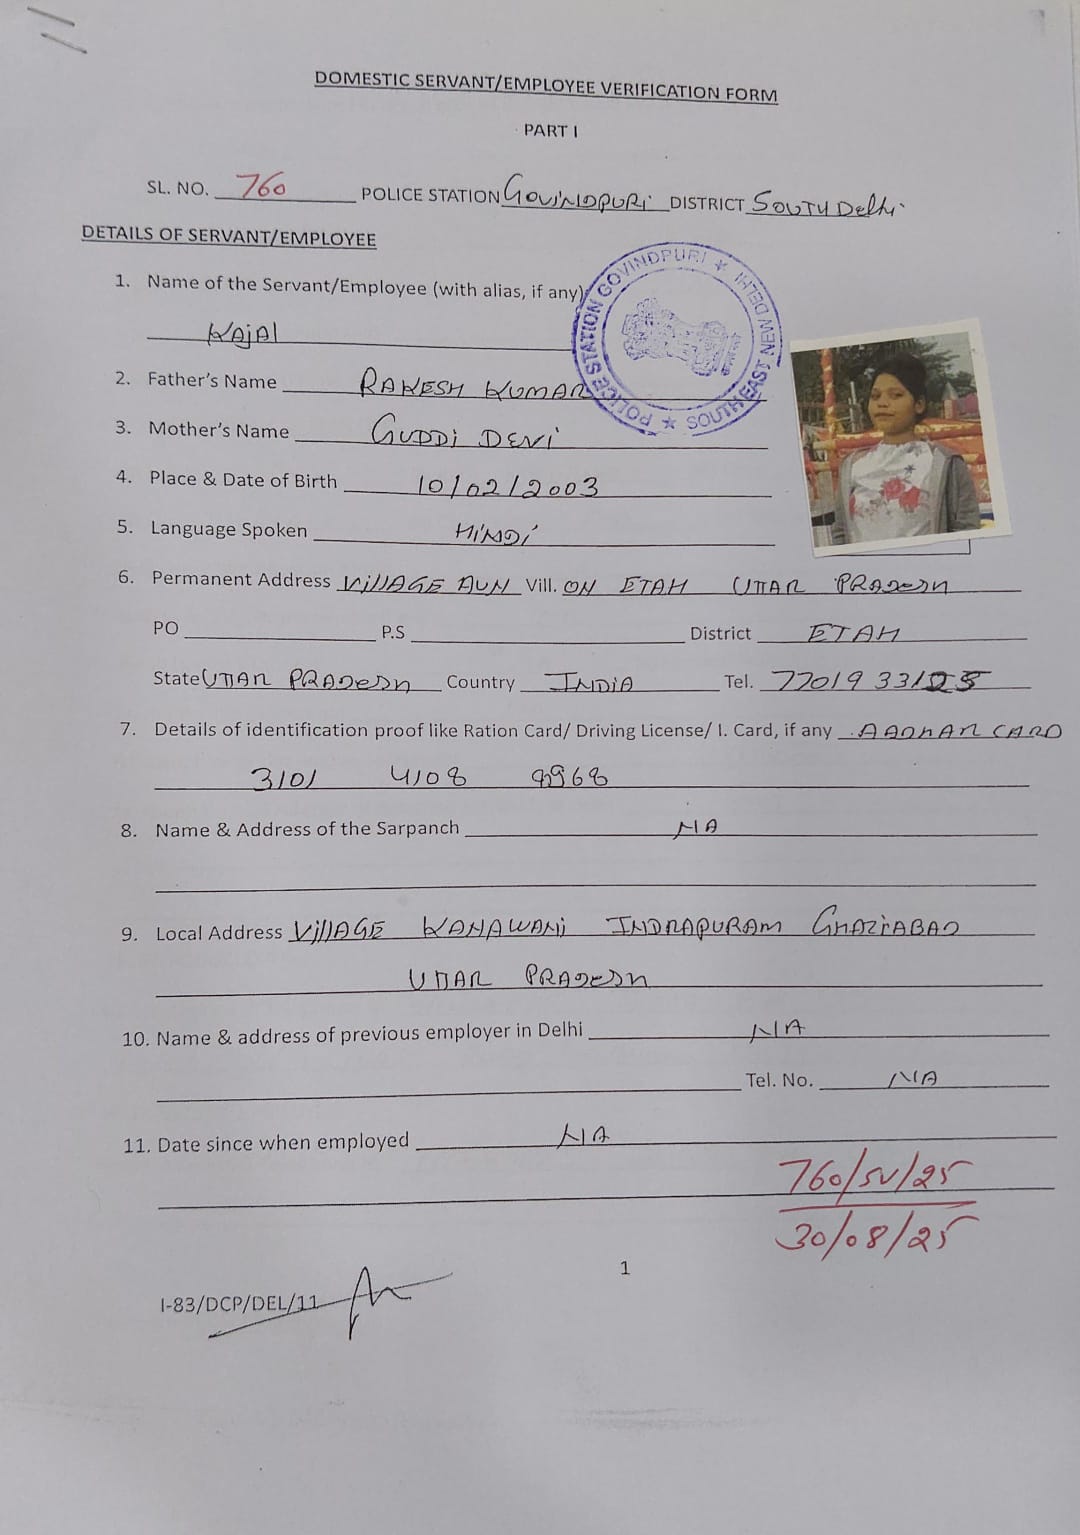 DOMESTIC SERVANT/EMPLOYEE VERIFICATION FORM
PART I
SL. NO. 760 POLICE STATION GOVINDPURI DISTRICT SOUTH Delhi
DETAILS OF SERVANT/EMPLOYEE
1. Name of the Servant/Employee (with alias, if any)
KAjAl
POLICE STATION GOVINDPURI ★ SOUTH EAST NEW DELHI ★
2. Father's Name RAKESH KUMAR
3. Mother's Name GUDDi DEVi
4. Place & Date of Birth 10/02/2003
5. Language Spoken HiNDi
6. Permanent Address VillAGE AUN Vill. ON ETAH UTTAR PRADESH
PO P.S District ETAH
State UTTAR PRADESH Country INDiA Tel. 77019 33123
7. Details of identification proof like Ration Card/ Driving License/ I. Card, if any AADHAR CARD
3101 4108 9968
8. Name & Address of the Sarpanch NA
9. Local Address VillAGE KANAWANi INDRAPURAM GHAZiABAD
UTTAR PRADESH
10. Name & address of previous employer in Delhi NA
Tel. No. NA
11. Date since when employed NA
760/SV/25
30/08/25
1
I-83/DCP/DEL/11